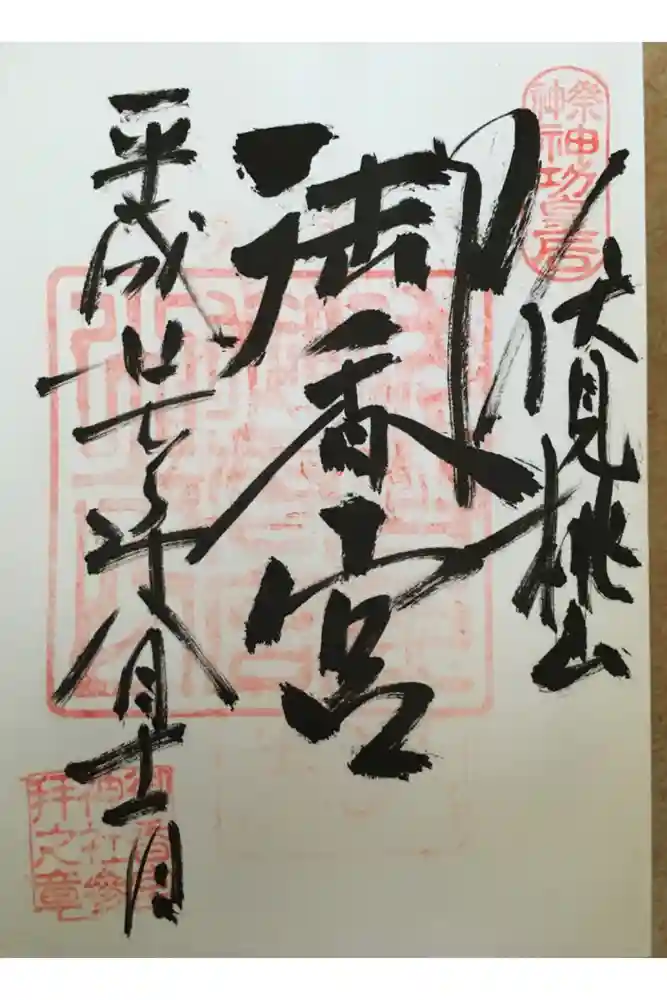 祭神
神功皇后
伏見桃山
御香宮
平成廿七年八月十一日
御香宮
神社參
拝之章